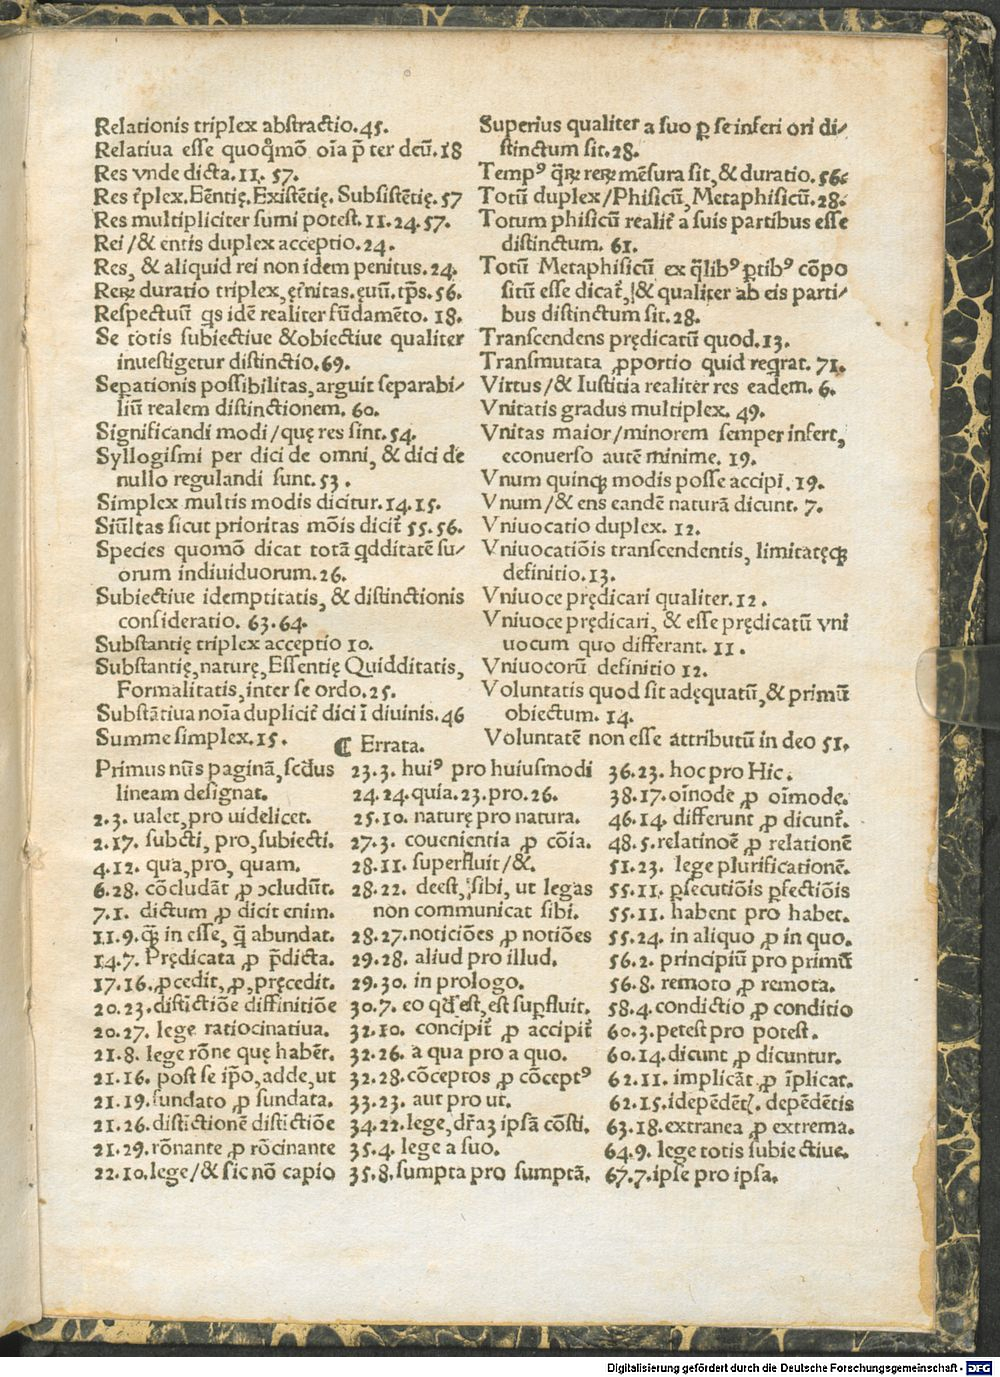 Relationis triplex abstractio.45.
Relatiua esse quoqm̃õ oĩa p̃ter deũ.18
Res vnde dicta.11. 57.
Res tͥplex.Eẽntię.Existẽtię.Subsistẽtię.57
Res multipliciter sumi potest.11.24.57.
Rei/& entis duplex acceptio.24.
Res, & aliquid rei non idem penitus.24.
Reꝝ duratio triplex, et̃nitas.euũ.tp̃s.56.
Respectuũ qs idẽ realiter fũdamẽto. 18.
Se totis subiectiue &obiectiue qualiter
inuestigetur distinctio.69.
Sepationis possibilitas, arguit separabi/
liũ realem distinctionem. 60.
Significandi modi/quę res sint.54.
Syllogismi per dici de omni, & dici de
nullo regulandi sunt.53.
Simplex multis modis dicitur.14.15.
Siũltas sicut prioritas mõis dicit̃ 55.56.
Species quomõ dicat totã qdditatẽ su/
orum indiuiduorum.26.
Subiectiue idemptitatis, & distinctionis
consideratio. 63.64.
Substantię triplex acceptio 10.
Substantię, naturę, Essentię Quidditatis,
Formalitatis, inter se ordo.25.
Substãtiua noĩa duplicit̃ dici ĩ diuinis.46
Summe simplex.15.
Superius qualiter a suo ꝑ se inferi ori di/
stinctum sit.28.
Tempꝰ q̃ꝝ reꝝ mẽsura sit, & duratio. 56.
Totũ duplex/Phisicũ, Metaphisicũ.28.
Totum phisicũ realit̃ a suis partibus esse
distinctum. 61.
Totũ Metaphisicũ ex q̃libꝰ ꝑtibꝰ cõpo
sitũ esse dicat̃, & qualiter ab eis parti/
bus distinctum sit.28.
Transcendens prędicatũ quod.13.
Transmutata ꝓportio quid reqrat. 71.
Virtus/& Iustitia realiter res eadem. 6.
Vnitatis gradus multiplex. 49.
Vnitas maior/minorem semper infert,
econuerso autẽ minime. 19.
Vnum quinqꝫ modis posse accipi. 19.
Vnum/& ens eandẽ naturã dicunt. 7.
Vniuocatio duplex. 12.
Vniuocatiõis transcendentis, limitatęqꝫ
definitio.13.
Vniuoce prędicari qualiter.12.
Vniuoce prędicari, & esse prędicatũ vni
uocum quo differant. 11.
Vniuocorũ definitio 12.
Voluntatis quod sit adęquatũ, & primũ
obiectum. 14.
Voluntatẽ non esse attributũ in deo 51.
¶ Errata.
Primus nũs paginã, scd̃us
lineam designat.
2.3. ualet, pro uidelicet.
2.17. subcti, pro, subiecti.
4.12. qua, pro, quam.
6.28. cõcludãt ꝓ ↄcludũt.
7.1. dictum ꝓ dicit enim.
11.9. qꝫ̃ in esse, q̃ abundat.
14.7. Prędicata ꝓ p̃dicta.
17.16. ꝓcedit, ꝓ, pręcedit.
20.23. distictiõe diffinitiõe
20.27. lege ratiocinatiua.
21.8. lege rõne quę habẽt.
21.16. post se ip̃o, adde, ut
21.19. fundato ꝓ fundata.
21.26. distictionẽ distictiõe
21.29. rõnante ꝓ rõcinante
22.10. lege/& sic nõ capio
23.3. huiꝰ pro huiusmodi
24.24. quia.23. pro.26.
25.10. naturę pro natura.
27.3. couenientia ꝓ cõia.
28.11. superfluit/&.
28.22. deest, sibi, ut legas
non communicat sibi.
28.27. noticiões ꝓ notiões
29.28. aliud pro illud.
29.30. in prologo.
30.7. eo qđ est, est suꝑfluit.
32.10. concipit̃ ꝓ accipit̃
32.26. a qua pro a quo.
32.28. cõceptos ꝓ cõceptꝰ
33.23. aut pro ut.
34.22. lege, dr̃aꝫ ipsã cõsti.
35.4. lege a suo.
35.8. sumpta pro sumptã.
36.23. hoc pro Hic.
38.17. oĩnode ꝓ oĩmode.
46.14. differunt ꝓ dicunt̃.
48.5. relatinoẽ ꝓ relationẽ
51.23. lege plurificationẽ.
55.11. ꝑsecutiõis ꝑfectiõis
55.11. habent pro habet.
55.24. in aliquo ꝓ in quo.
56.2. principiũ pro primũ
56.8. remoto ꝓ remota.
58.4. condictio ꝓ conditio
60.3. petest pro potest.
60.14. dicunt ꝓ dicuntur.
62.11. implicãt ꝓ ĩplicat.
62.15. idepẽdẽt. depẽdẽtis
63.18. extranea ꝓ extrema.
64.9. lege totis subiectiue.
67.7. ipse pro ipsa.
Digitalisierung gefördert durch die Deutsche Forschungsgemeinschaft - DFG